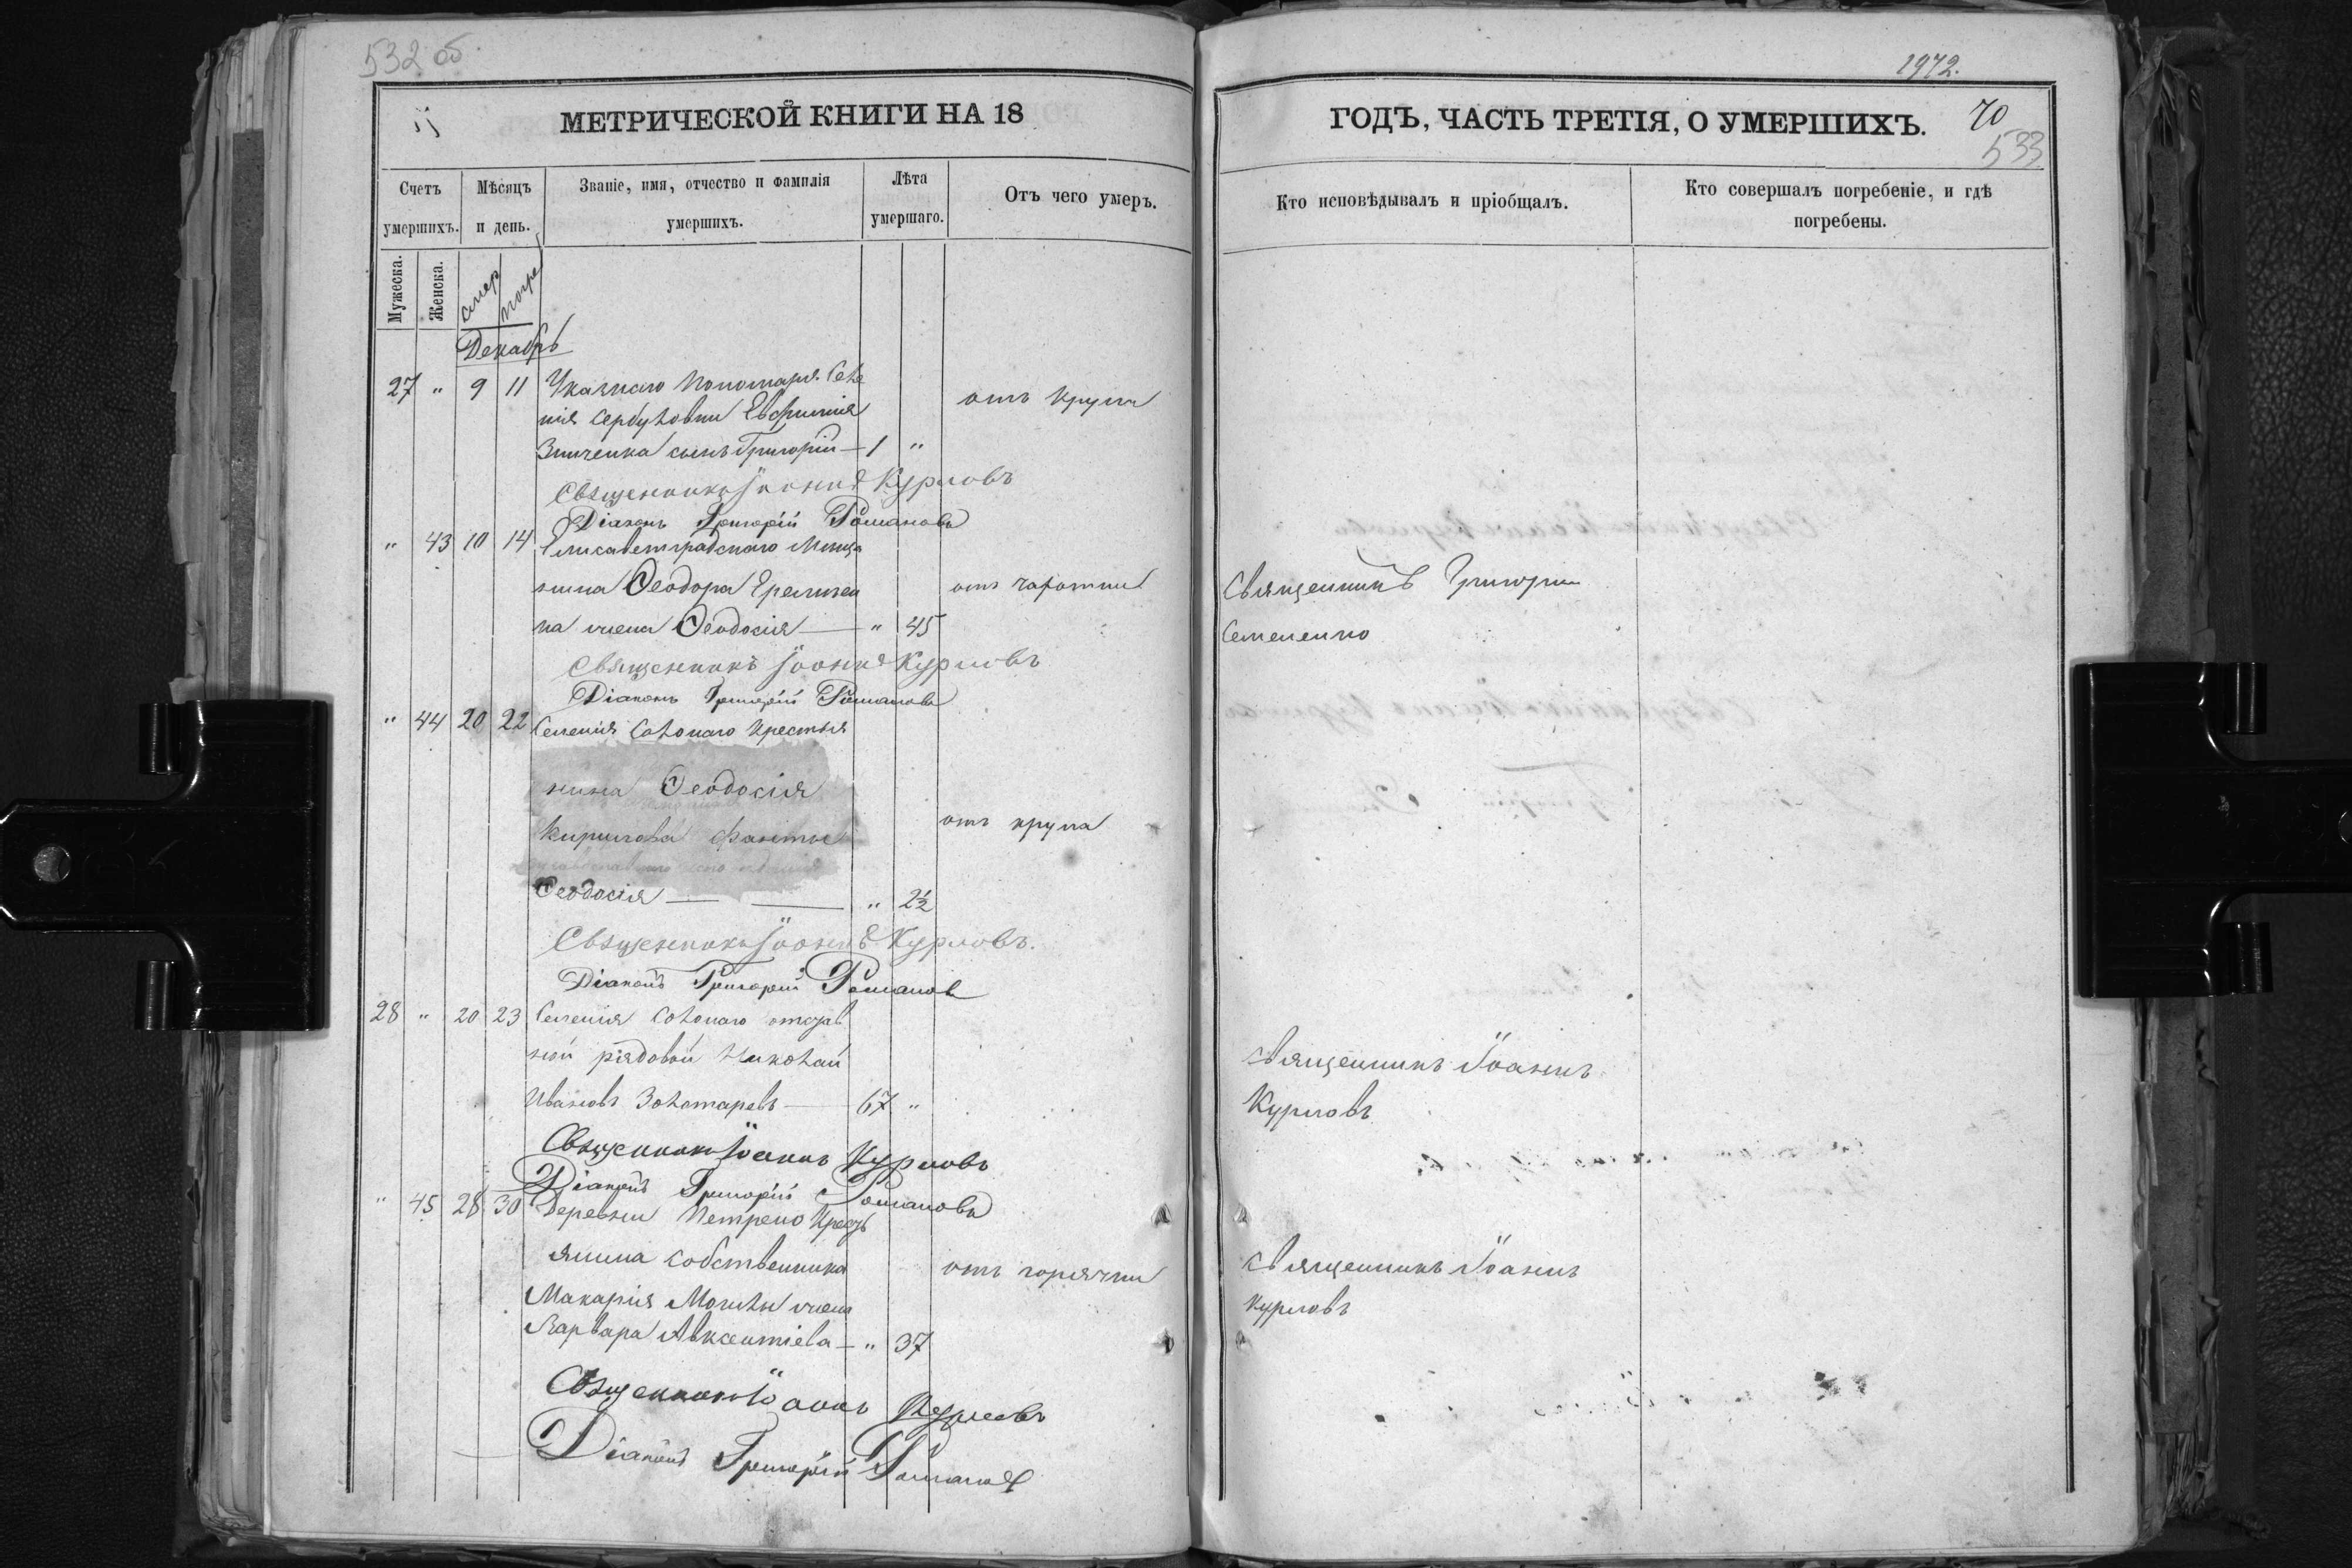 532 об
МЕТРИЧЕСКОЙ КНИГИ НА 18
Счетъ умершихъ.
Мѣсяцъ и день.
Званіе, имя, отчество и фамилія умершихъ.
Лѣта умершаго.
Отъ чего умеръ.
Мужеска.
Женска.
умер
погре
Декабрь
27 " 9 11 Указнаго пономаря Селе
нія Евфимія
Зинченка сынъ Григорій — 1 " отъ крупа
Священникъ Іоаннъ Курловъ
Діаконъ Григорій Романовъ
" 43 10 14 Елисаветградскаго Меща
нина Ѳеодора
на жена Ѳеодосія — " 45 отъ чахотки
Священникъ Іоаннъ Курловъ
Діаконъ Григорій Романовъ
" 44 20 22 Селенія крестья
нина Ѳеодосія
Кирилова
Ѳеодосія — " 2½ отъ крупа
Священникъ Іоаннъ Курловъ.
Діаконъ Григорій Романовъ
28 " 20 23 Селенія отстав
ной рядовой Николай
Ивановъ Золотаревъ — 67 "
Священникъ Іоаннъ Курловъ
Діаконъ Григорій Романовъ
" 45 28 30 Деревни Петрено Крест
янина собственника
Макарія жена
Варвара Авксентіева — " 37 отъ горячки
Священникъ Іоаннъ Курловъ
Діаконъ Григорій Романовъ
1972.
ГОДЪ, ЧАСТЬ ТРЕТІЯ, О УМЕРШИХЪ.
70
533
Кто исповѣдывалъ и пріобщалъ.
Кто совершалъ погребеніе, и гдѣ погребены.
Священникъ Григорий
Семененко
священникъ Іоаннъ
Курловъ
священникъ Іоаннъ
Курловъ